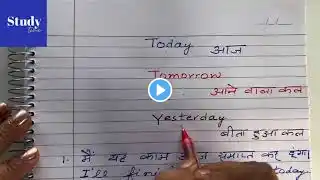 Study
time
Today आज
Tomorrow
आने वाला कल
Yesterday
बीता हुआ कल
1. मैं यह काम आज समाप्त कर दूंगा
I'll today